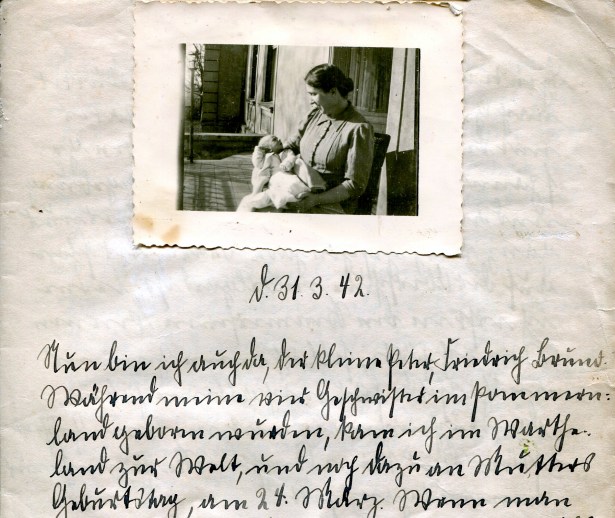 d. 31. 3. 42.
Nun bin ich auch da, der kleine Peter, Friedrich Bruno.
Während meine vier Geschwister im Pommern:
land geboren wurden, kam ich im Warthe-
land zur Welt, und noch dazu an Mutters
Geburtstag, am 24. März. Wenn man